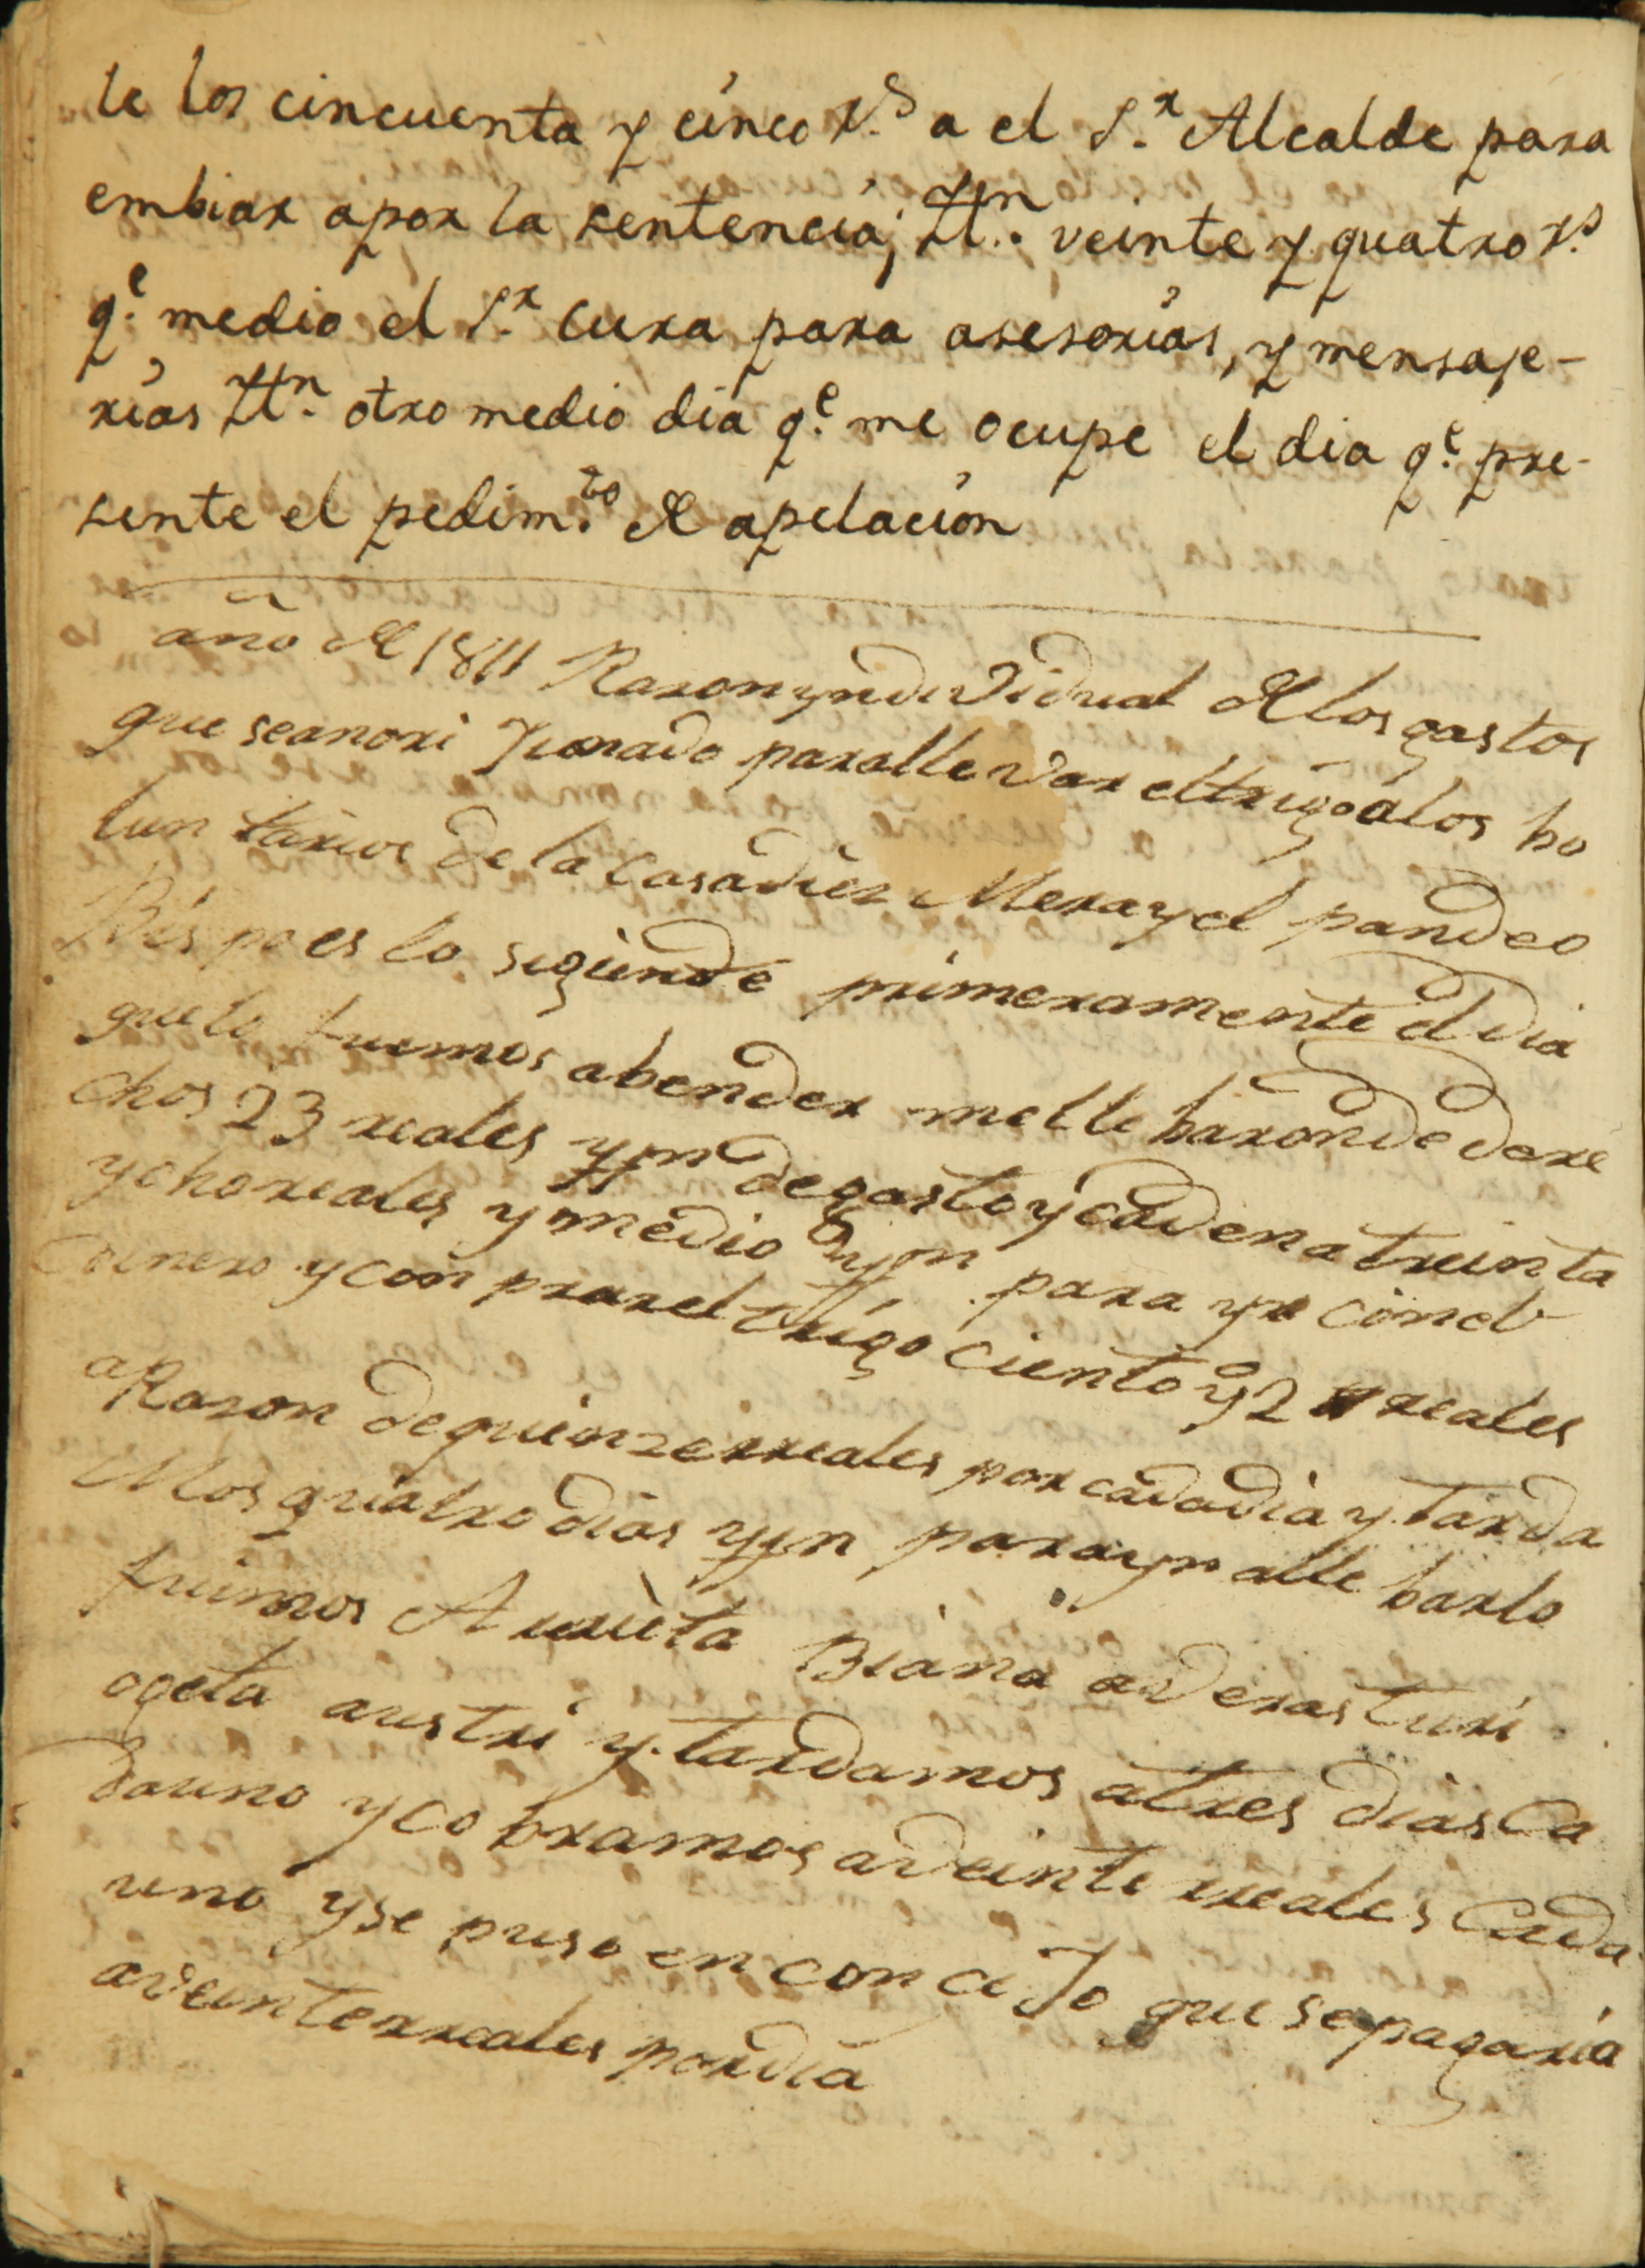 le los cincuenta y cinco r.s a el S.r Alcalde para
embiar apor la sentencia; Ytt.n veinte y quatro r.s
q.e medio el S.r Cura para asesorias, y mensaje-
rias Ytt.n otro medio dia q.e me ocupe el dia q.e pre-
sente el pedim.to de apelacion
año de 1811 Razon yndividual de los gastos
que seanori Jinado parallevar eltrigo alos bo
lun tarios de la Casadiez Mexa y el pandeo
Bispo es lo sigiende primeramente el dia
que lo fuemos abender melle baron de dere
chos 23 reales yttn degasto y cadena treinta
ychoreales y medio yttn para yr conel
dinero ycon prarel trigo ciento y 2 reales
aRazon dequinzerreales por cadadia y tarda
Mos quatro dias yttn parayr alle barlo
fuimos Aurieta Biana arderasturi
ogeta austri y tardamos atres dias Ca
dauno yco bramos aveinte rreales Cada
uno yse puso en conceJo que sepagaria
aveinterreales pordia